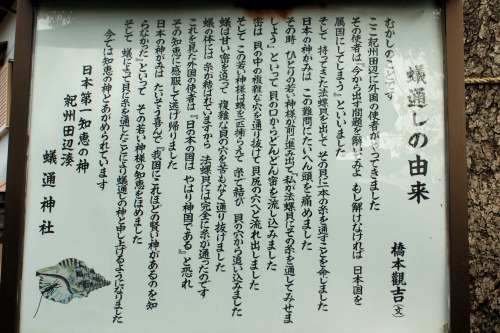 蟻通しの由来
橋本觀吉(文)
むかしのことです
ここ紀州田辺に外国の使者がやってきました
その使者は「今から出す問題を解いてみよ もし解けなければ 日本国を
属国にしてしまう」といいました
そして 持ってきた法螺貝を出して その貝に一本の糸を通すことを命じました
日本の神がみは この難問にたいへん頭を痛めました
その時 ひとりの若い神様が前に進み出て「私が法螺貝にその糸を通してみせま
しょう」といって 貝の口からどんどん蜜を流し込みました
蜜は 貝の中の複雑な穴を通り抜けて 貝尻の穴へと流れ出しました
そして この若い神様は蟻を一匹捕らえて 糸で結び 貝の穴から追い込みました
蟻は甘い蜜を追って 複雑な貝の穴を苦もなく通り抜けました
蟻の体には 糸が結ばれていますから 法螺貝には完全に糸が通ったのです
これを見た外国の使者は 『日の本の国は やはり神国である』と恐れ
その知恵に感服して 逃げ帰りました
日本の神がみは たいそう喜んで『我国にこれほどの賢い神があるのを知
らなかった』といって その若い神様の知恵をほめました
そして 蟻によって貝に糸を通したことにより蟻通しの神と申し上げるようになりました
今では 知恵の神とあがめられています
日本第一知恵の神
紀州田辺湊
蟻通神社